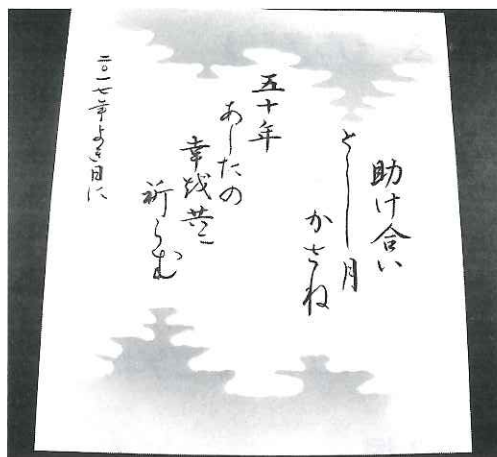 助け合い
とし月
かさね
五十年
あしたの
幸越共に
祈らむ
二〇一七年よき日に